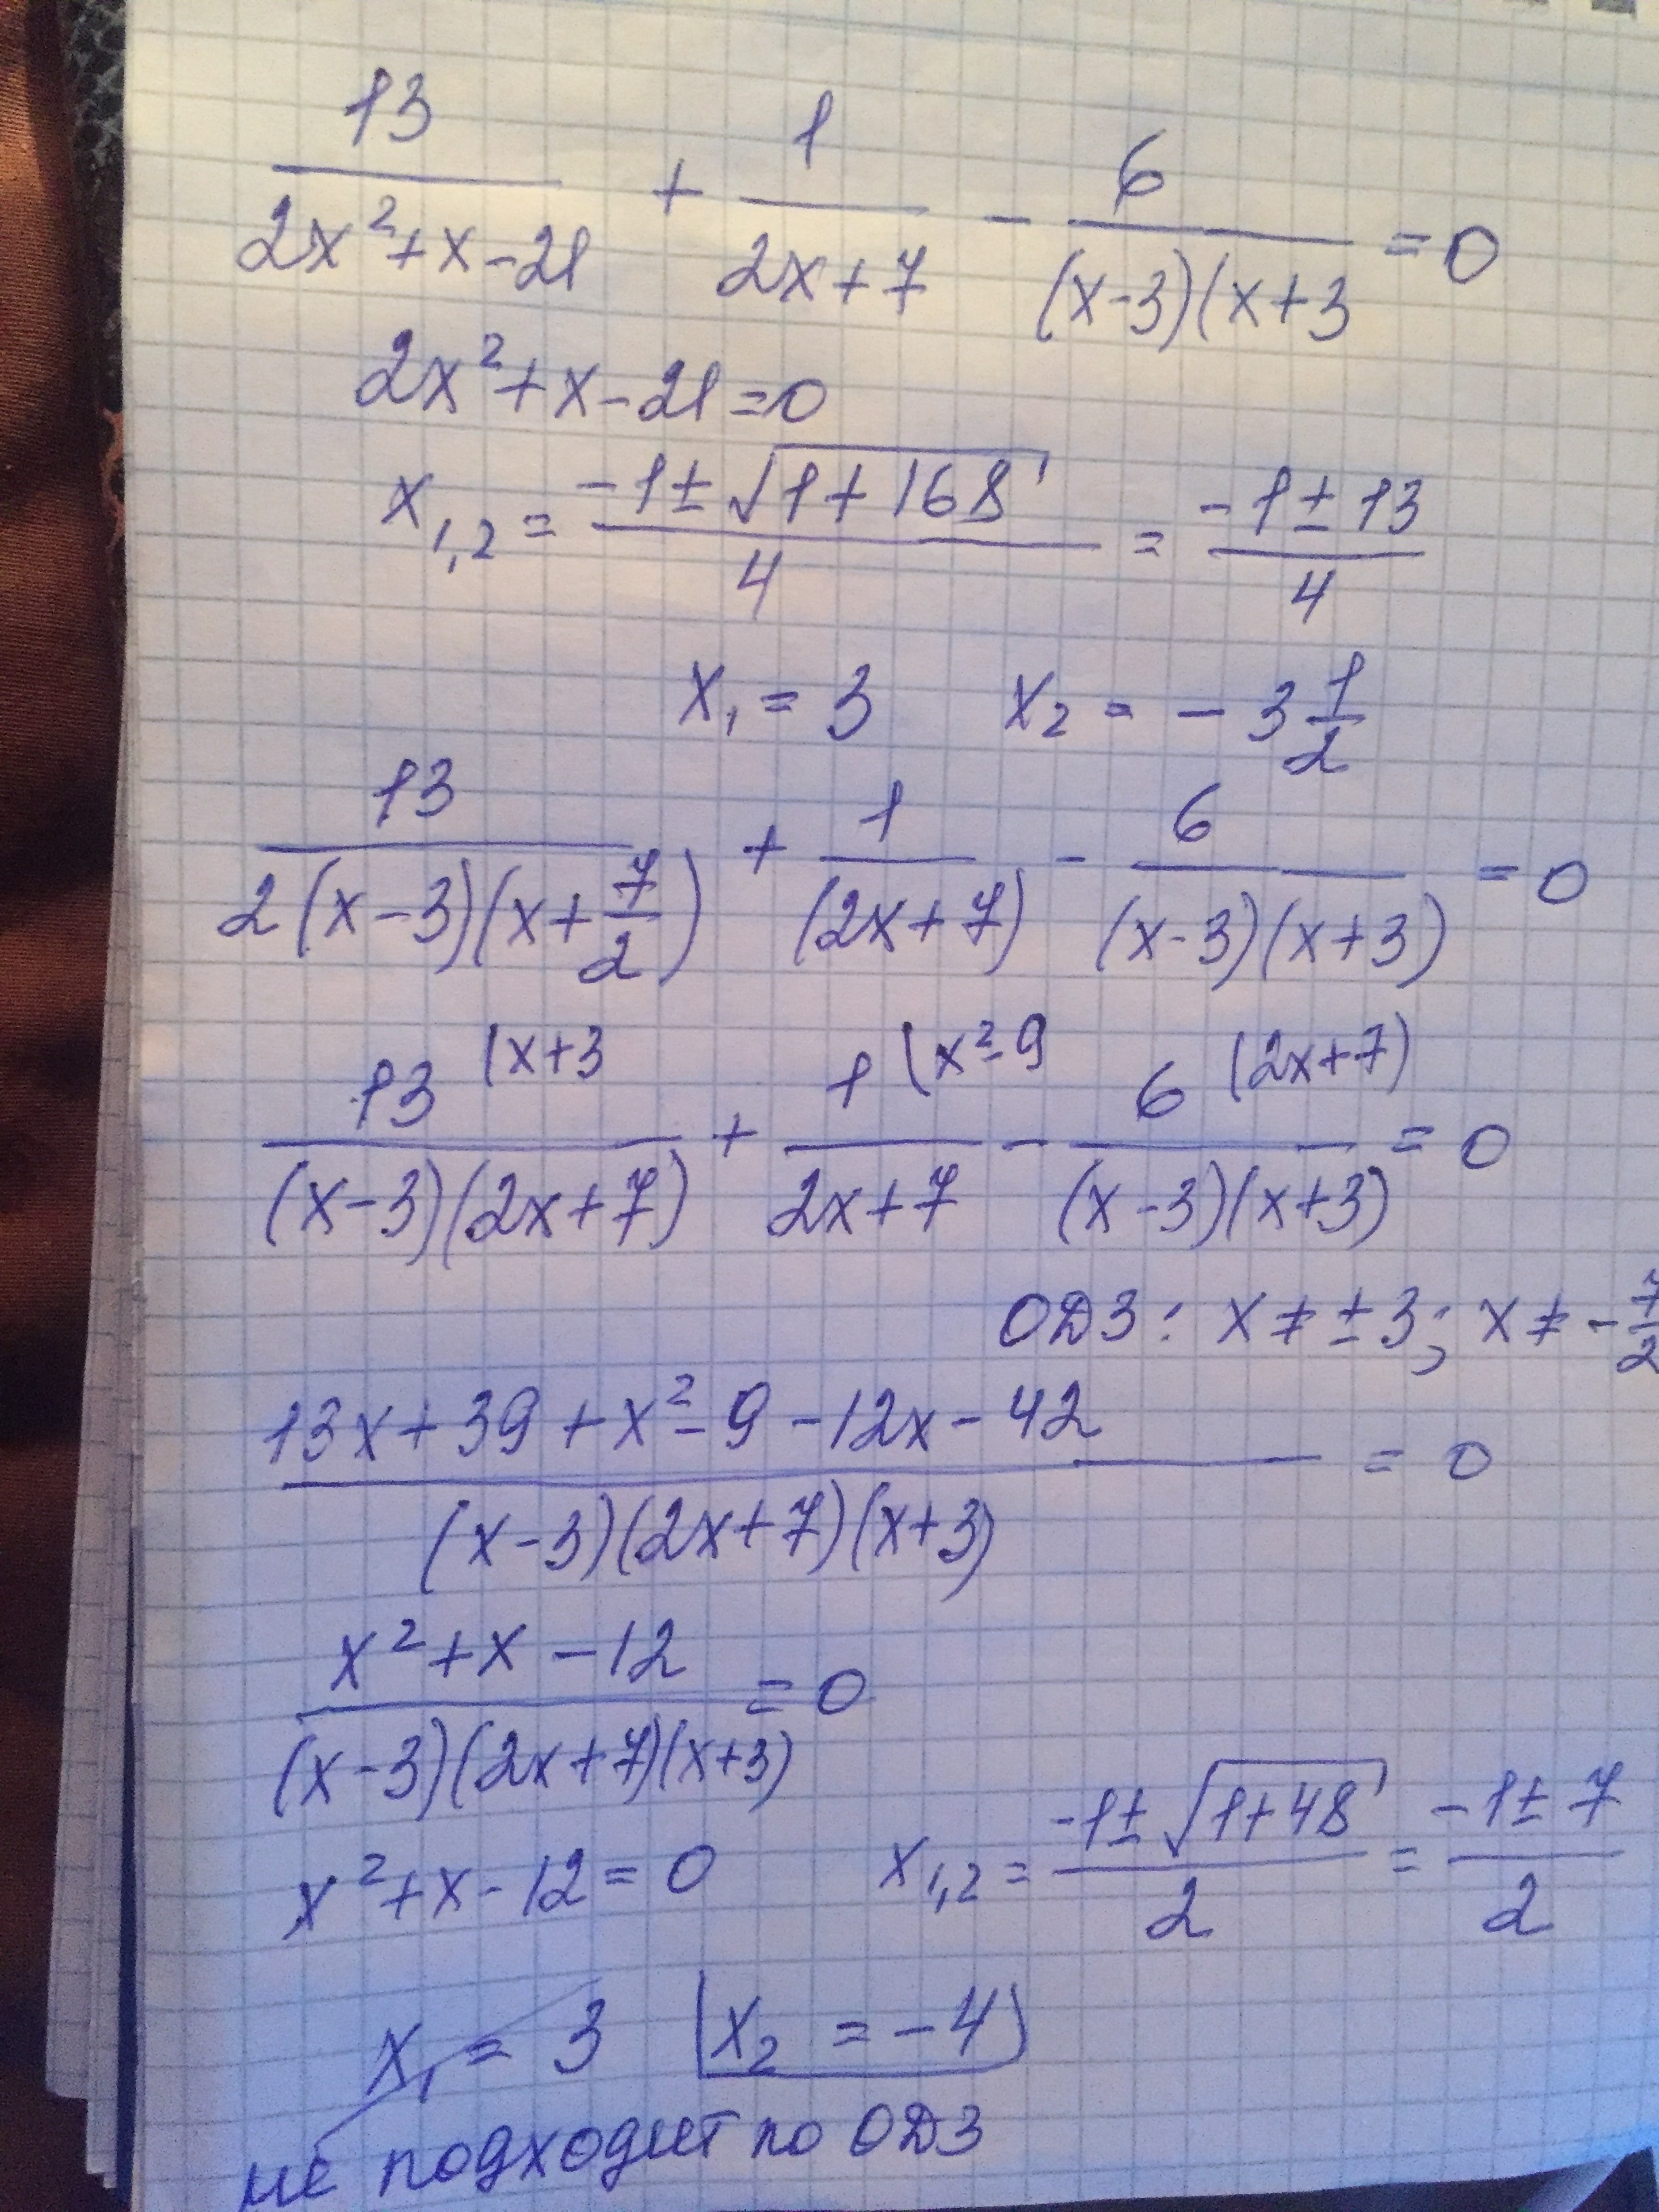 13/(2x²+x-21) + 1/(2x+7) - 6/((x-3)(x+3) = 0
2x²+x-21=0
x₁,₂ = (-1±√(1+168))/4 = (-1±13)/4
x₁ = 3 x₂ = -3 1/2
13/(2(x-3)(x+7/2)) + 1/((2x+7)) - 6/((x-3)(x+3)) = 0
13 (x+3/((x-3)(2x+7)) + 1 (x²-9/(2x+7) - 6 (2x+7)/((x-3)(x+3)) = 0
ОДЗ: x ≠ ±3; x ≠ -7/2
(13x+39+x²-9-12x-42)/((x-3)(2x+7)(x+3)) = 0
(x²+x-12)/((x-3)(2x+7)(x+3)) = 0
x²+x-12=0 x₁,₂ = (-1±√(1+48))/2 = (-1±7)/2
x₁ = 3 x₂ = -4
не подходит по ОДЗ